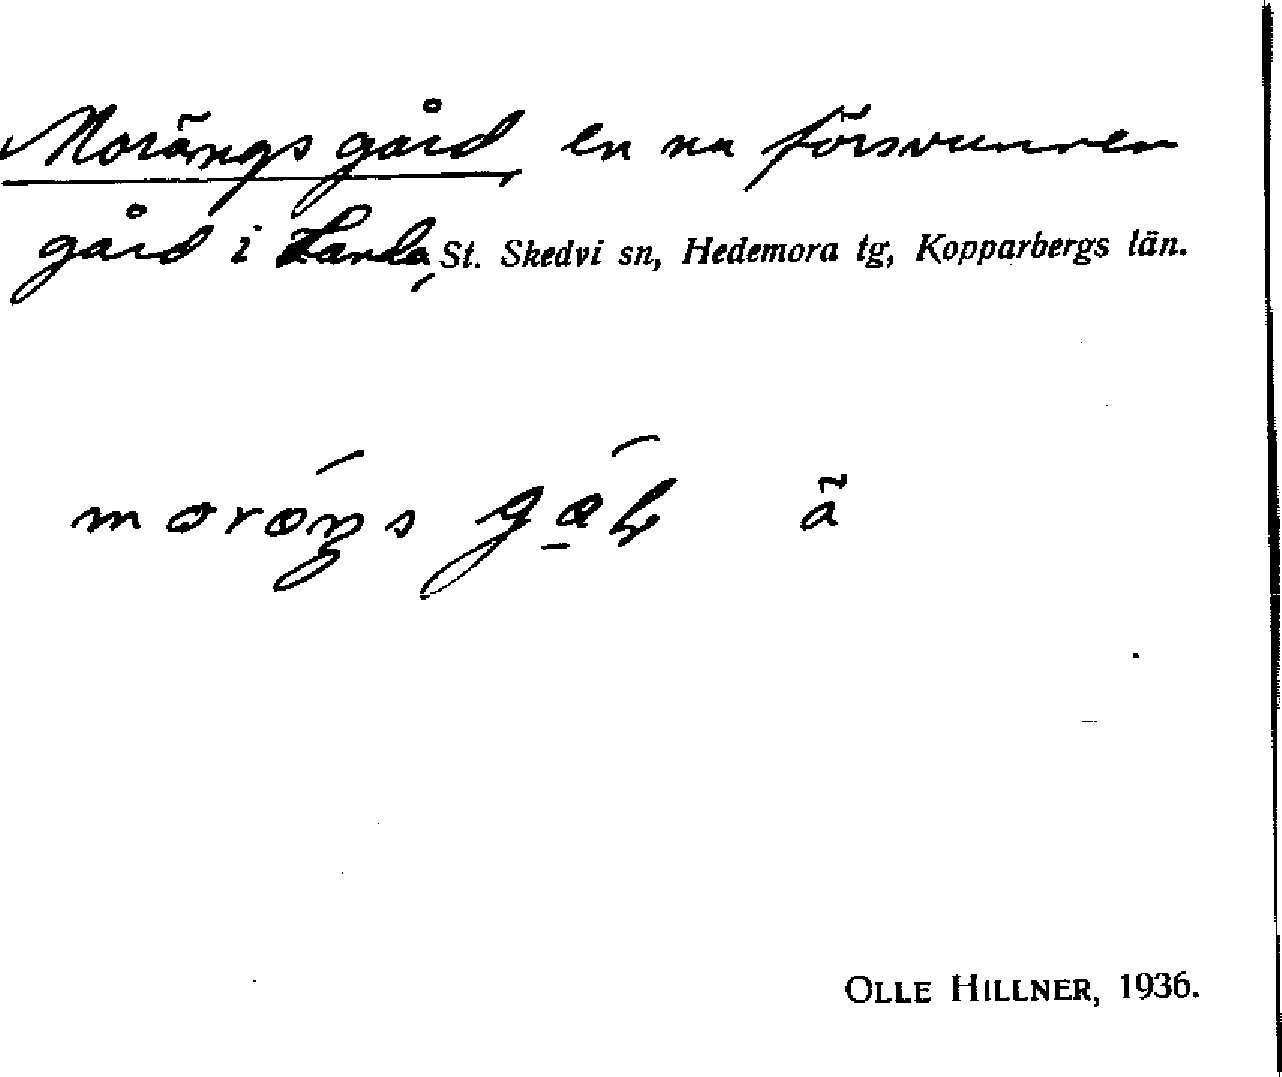 Morängs gård, en nu försvunnen
gård i Landa, St. Skedvi sn, Hedemora tg, Kopparbergs län.
OLLE HILLNER, 1936.